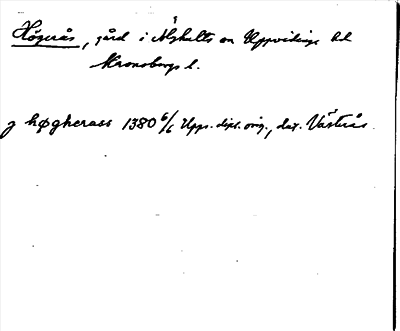 Högerås, gård i Älghults sn Uppvidinge hd
Kronobergs l.
j høgherass 1380 6/6 Upps. dipl. orig., dat. Västerås.